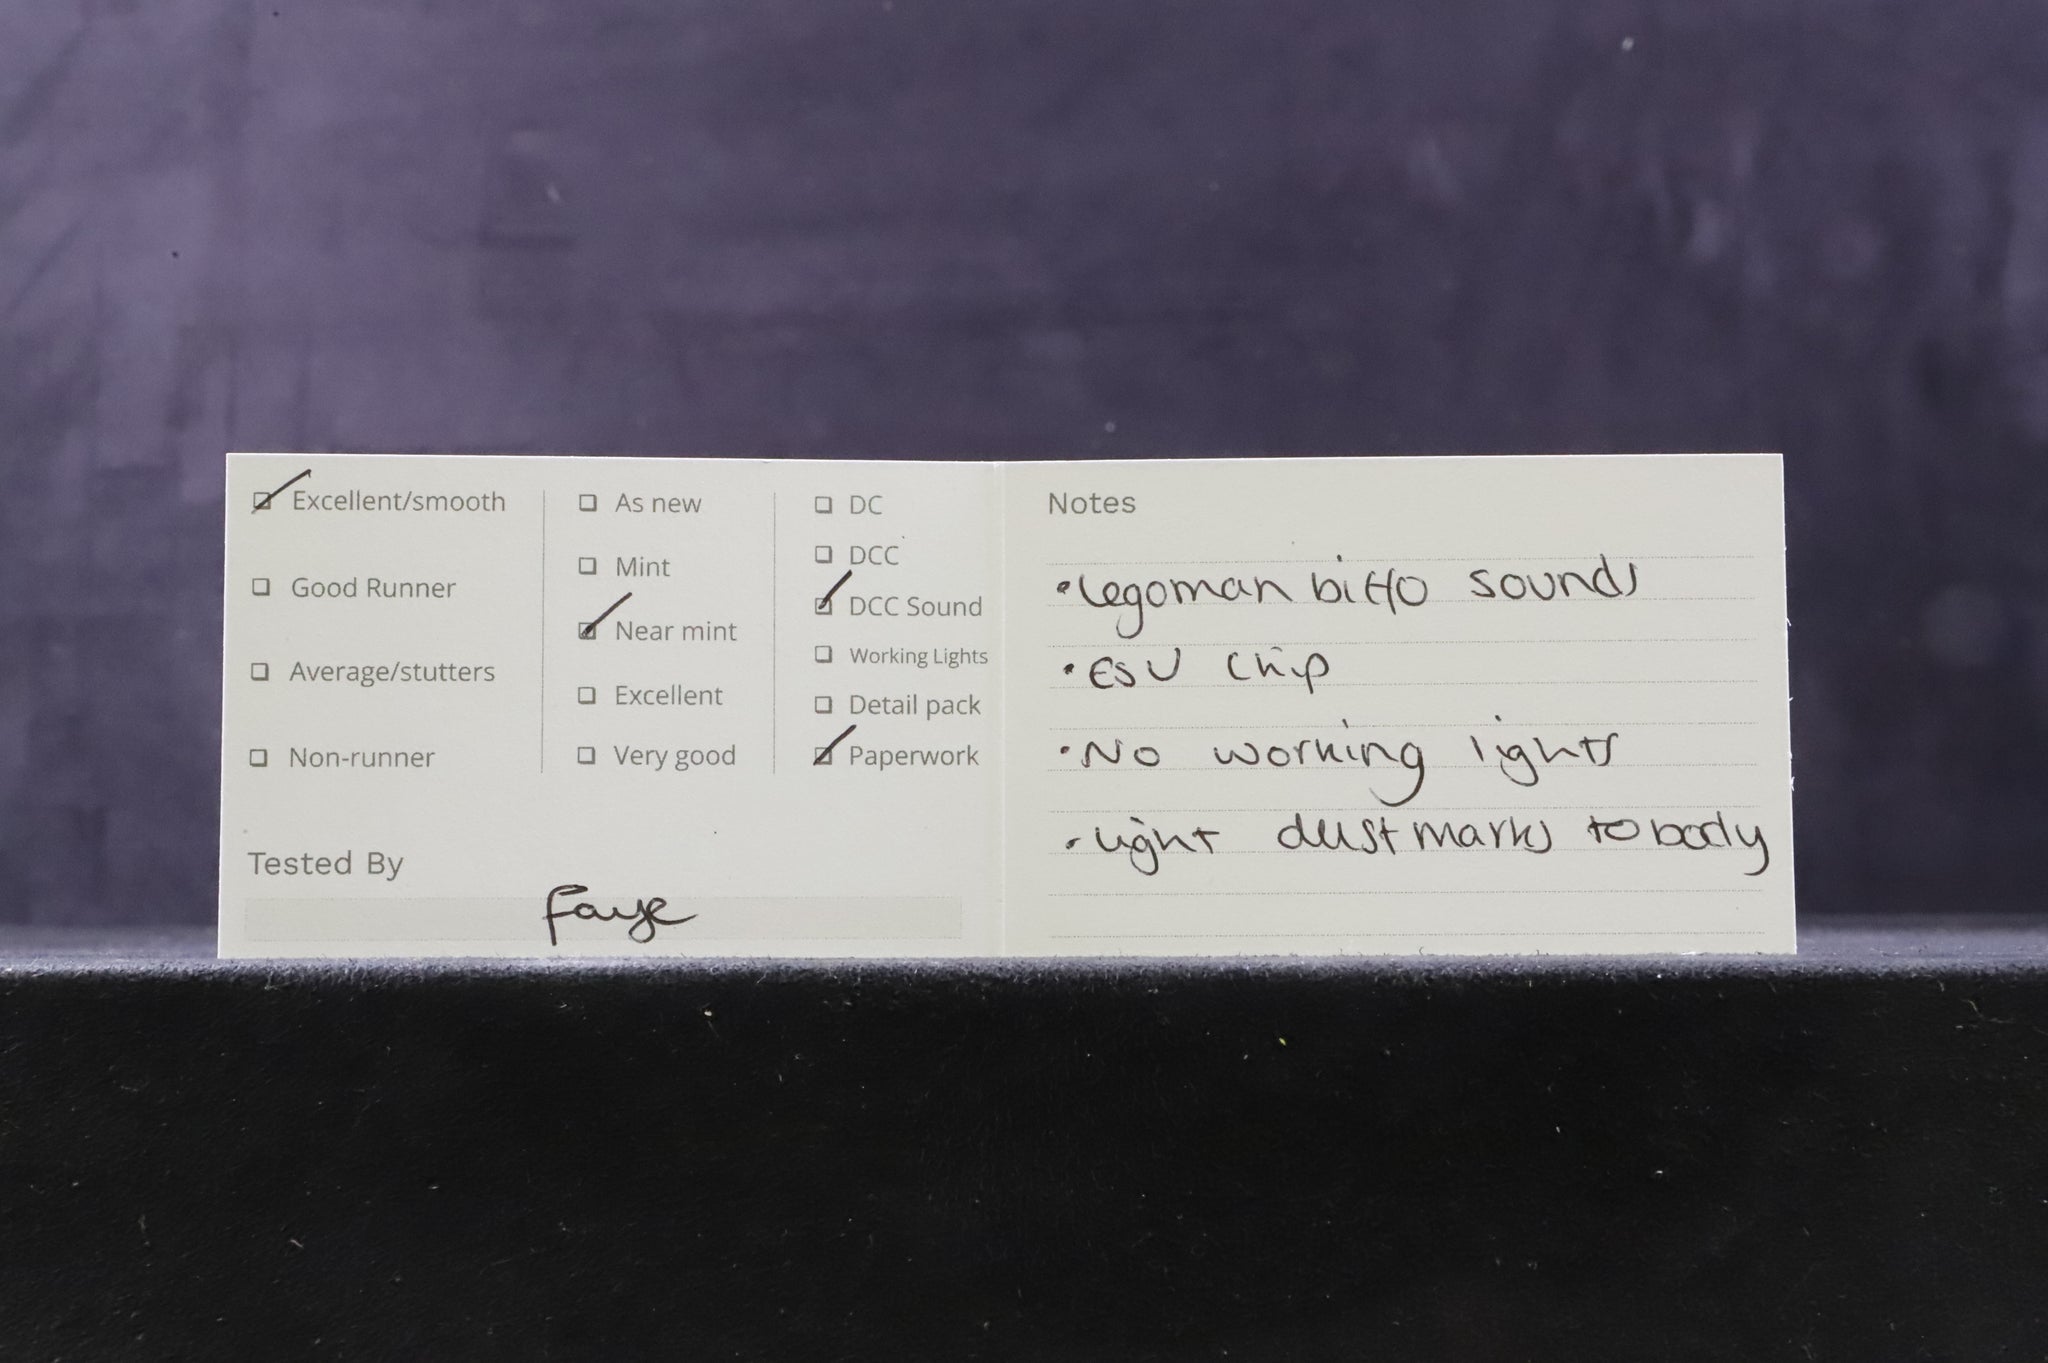 Excellent/smooth
Good Runner
Average/stutters
Non-runner
As new
Mint
Near mint
Excellent
Very good
DC
DCC
DCC Sound
Working Lights
Detail pack
Paperwork
Tested By
Faye
Notes
• Legoman biffo sounds
• ESU Chip
• No working lights
• Light dust marks to body